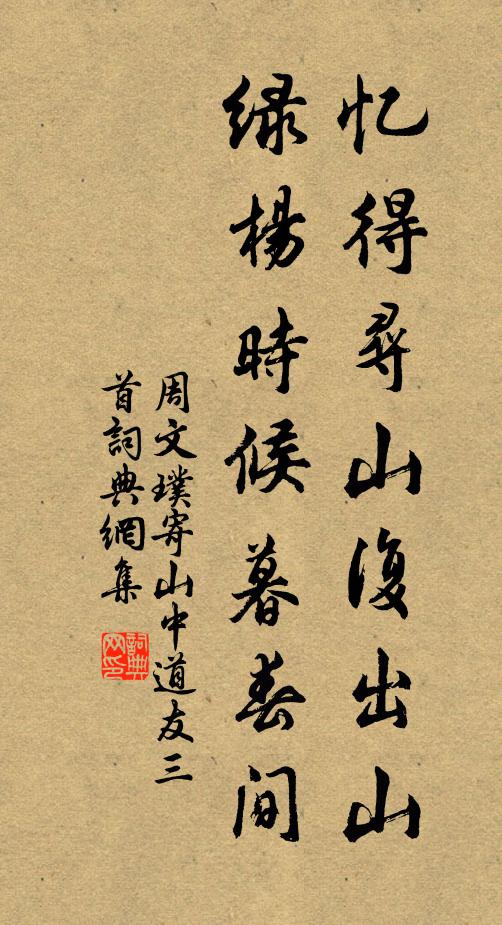 忆得寻山復出山
绿楊時候暮春间
周文璞寄山中道友三
首詞典網集
詞典网印